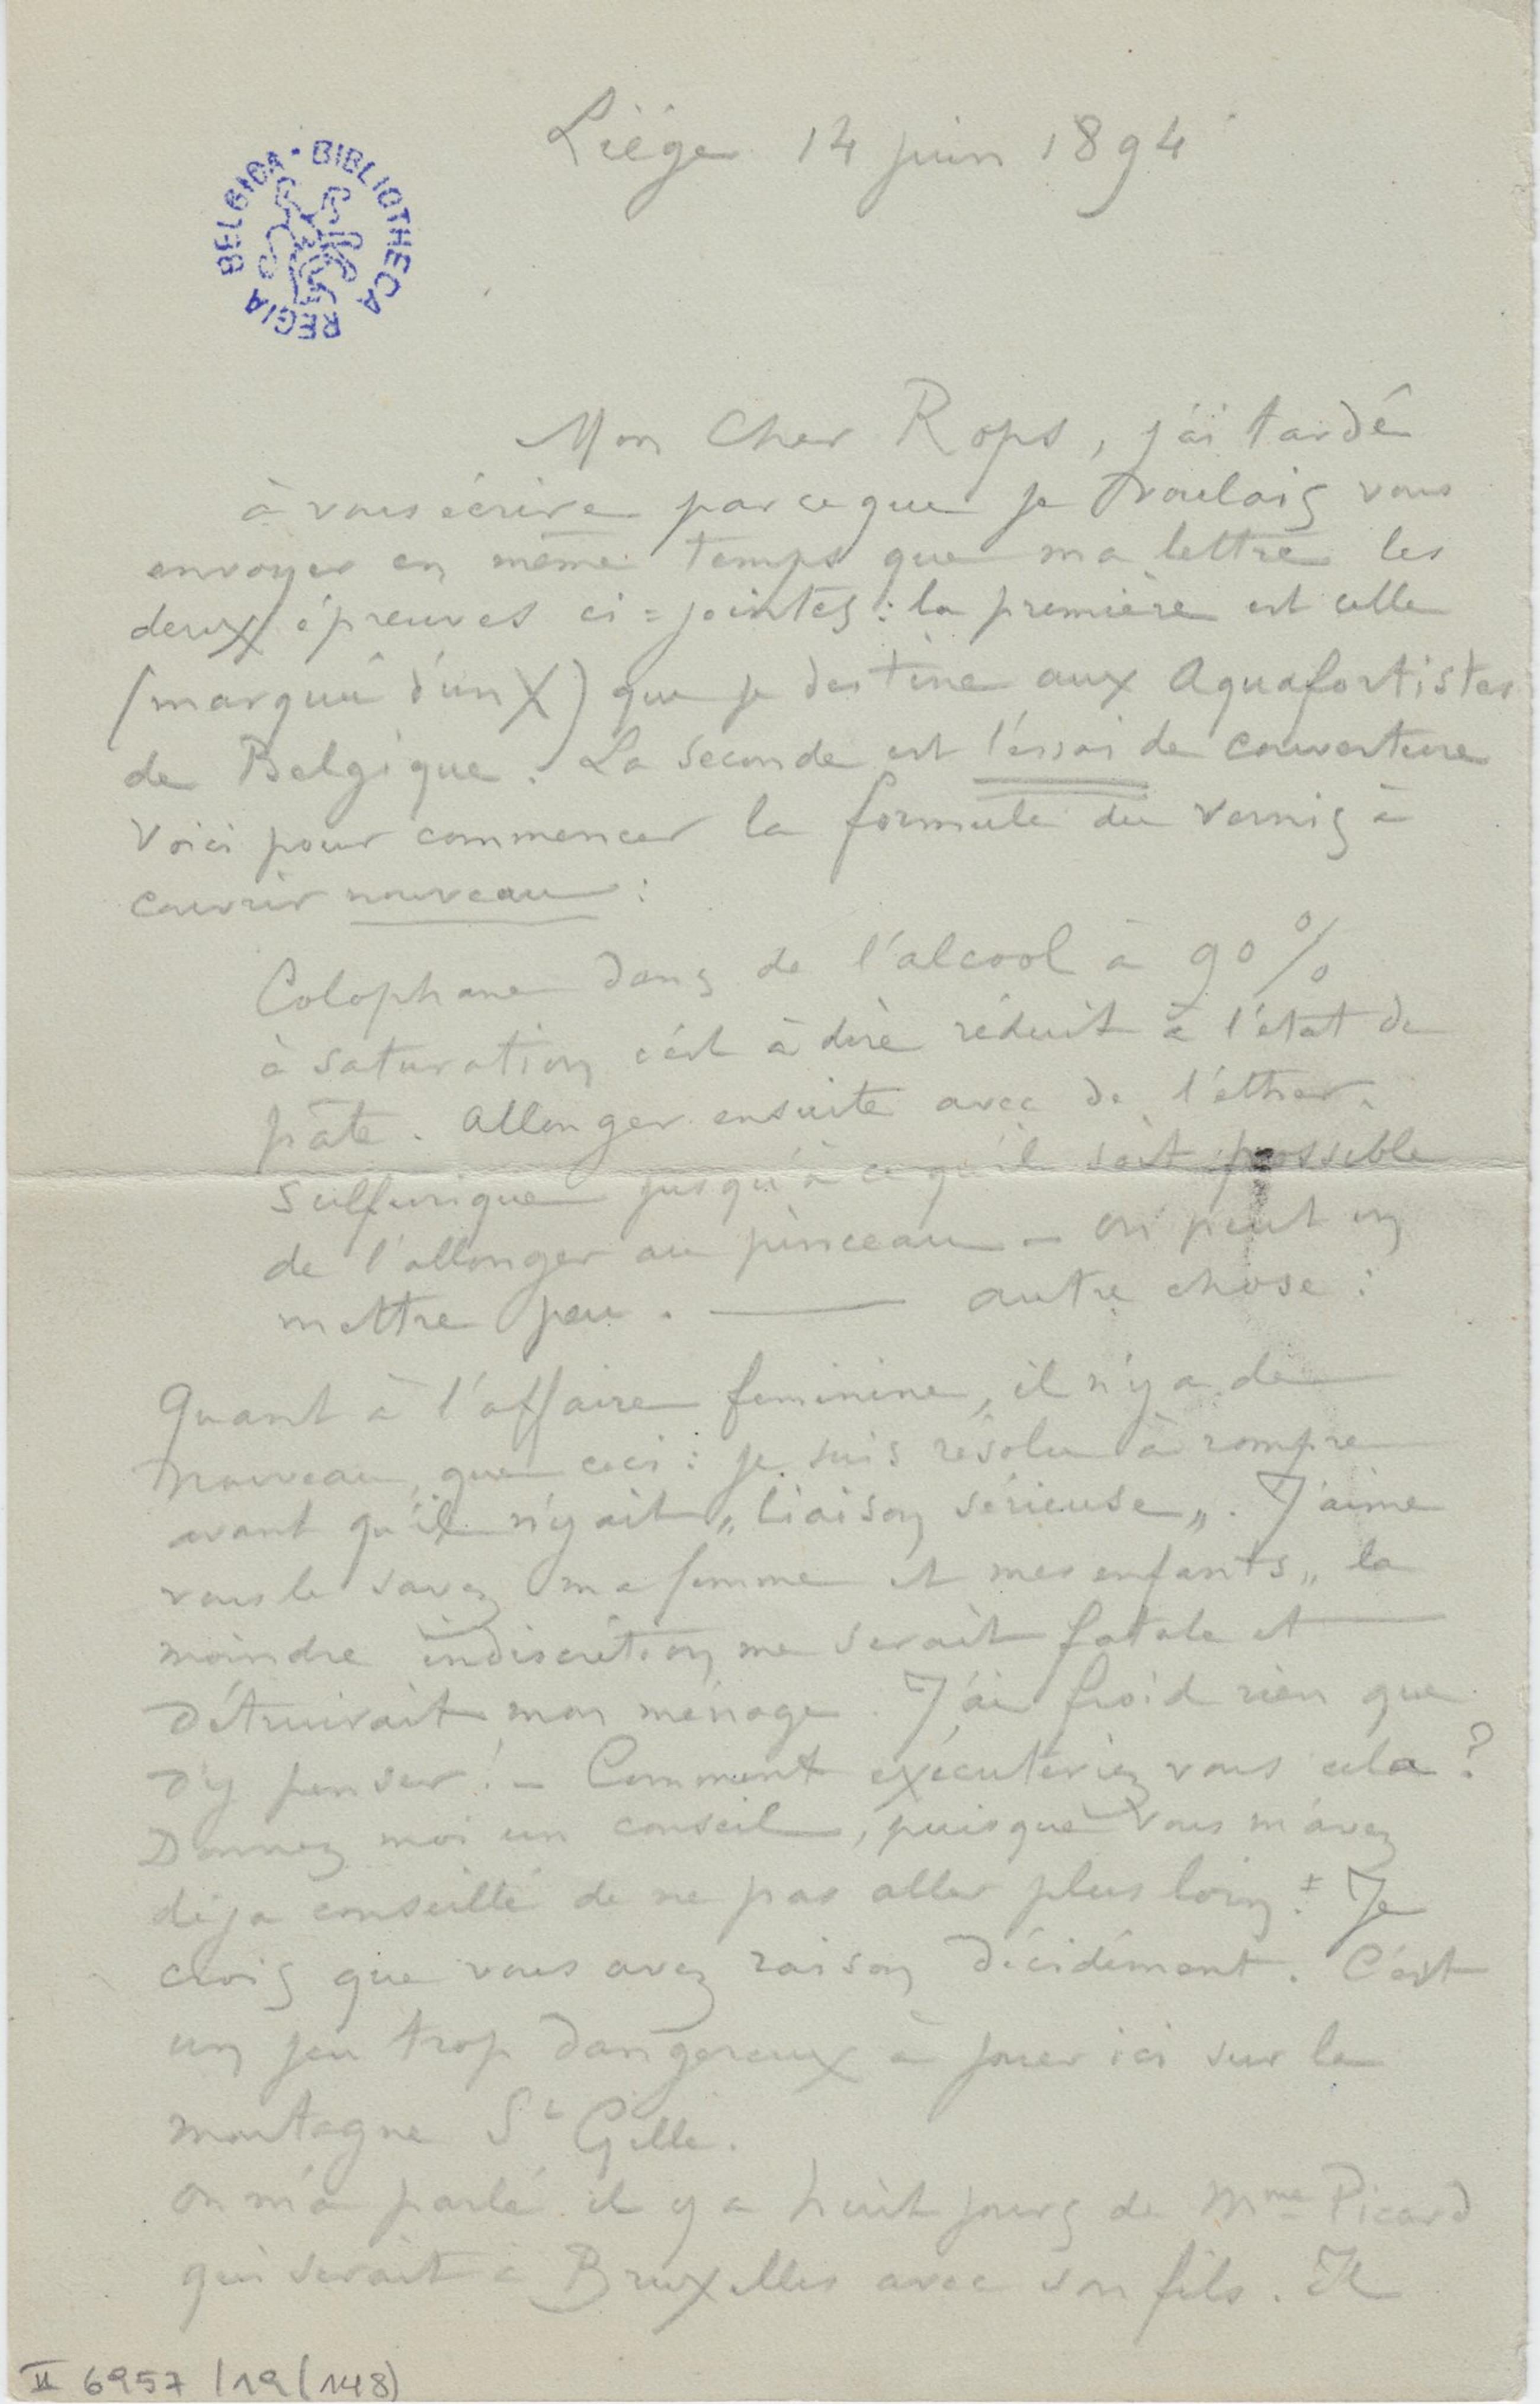 Liége 14 juin 1894
BELGICA · BIBLIOTHECA REGIA
Mon Cher Rops, j'ai tardé
à vous écrire parceque je voulais vous
envoyer en même temps que ma lettre les
deux épreuves ci=jointes : la première est celle
(marquée d'un X) que je destine aux Aquafortistes
de Belgique. La seconde est l'essai de couverture
Voici pour commencer la formule du vernis à
couvrir nouveau :
Colophane dans de l'alcool à 90 %
à saturation c'est à dire réduit à l'état de
pâte. Allonger ensuite avec de l'éther
sulfurique jusqu'à ce qu'il soit possible
de l'allonger au pinceau — on peut en
mettre peu. — autre chose :
Quant à l'affaire feminine, il n'y a de
nouveau, que ceci : je suis résolu à rompre
avant qu'il n'y ait „liaison sérieuse„. J'aime
vous le savez ma femme et mes enfants„ la
moindre indiscrétion me serait fatale et
détruirait mon ménage. J'ai froid rien que
d'y penser ! — Comment exécuteriez vous cela ?
Donnez moi un conseil, puisque vous m'avez
déja conseillé de ne pas aller plus loin. Je
crois que vous avez raison décidément. C'est
un jeu trop dangereux à jouer ici sur la
montagne St Gille.
On m'a parlé il y a huit jours de Mme Picard
qui serait à Bruxelles avec son fils. Il
II 6957/19(148)